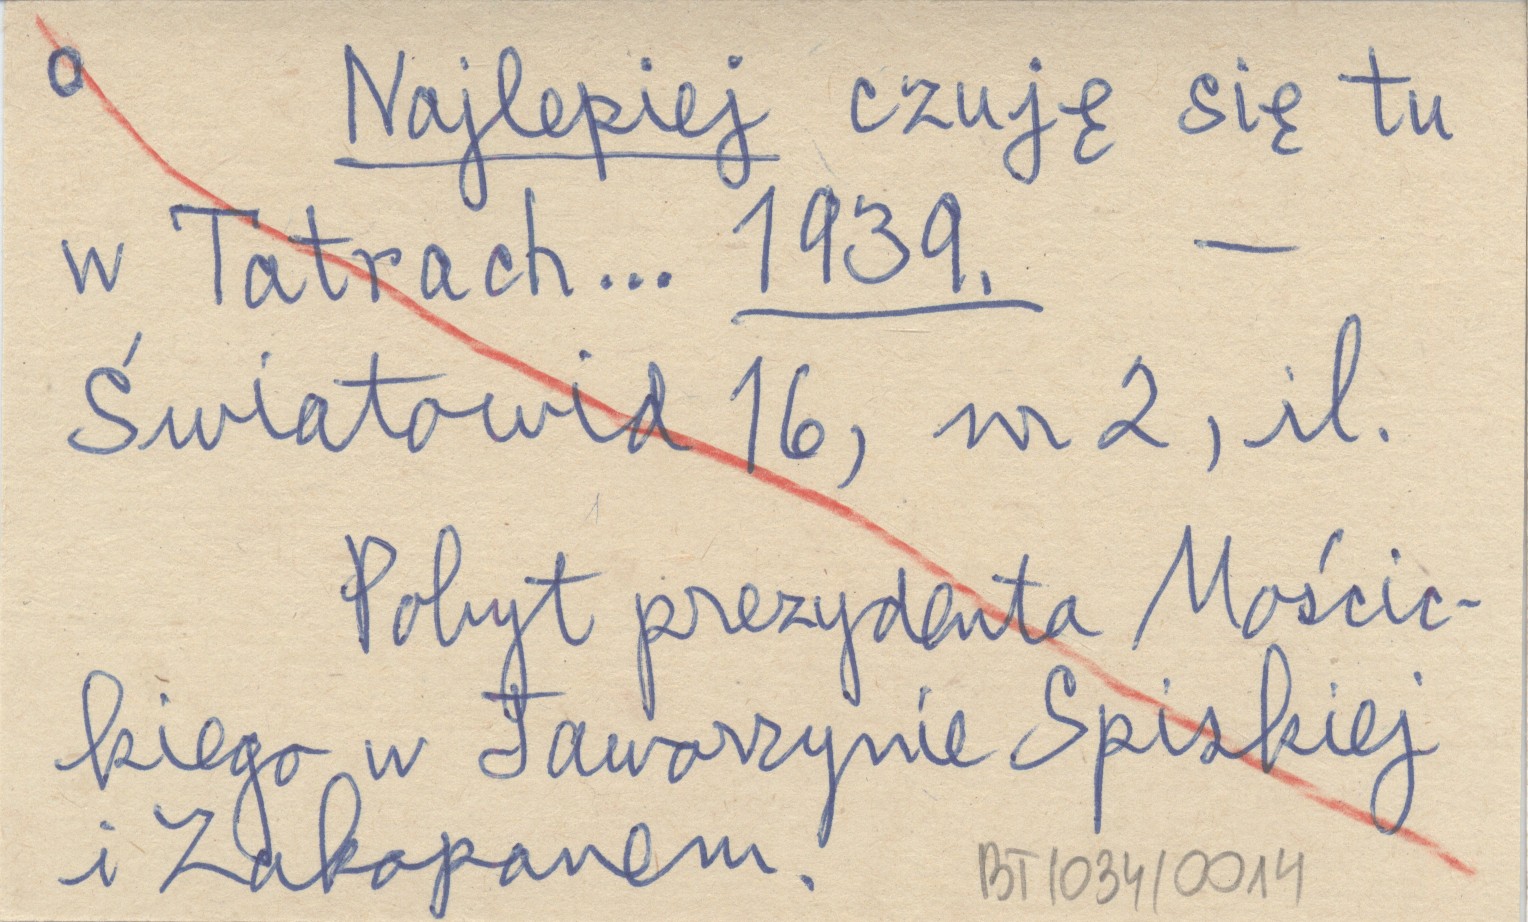 o Najlepiej czuję się tu
w Tatrach... 1939. —
Światowid 16, nr 2, il.
Pobyt prezydenta Mościc-
kiego w Jaworzynie Spiskiej
i Zakopanem.
BT/034/0014